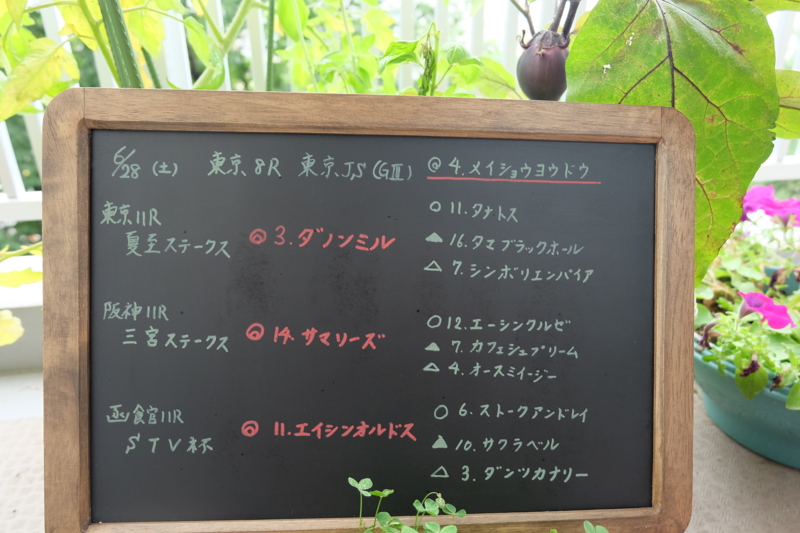 6/28 (土) 東京 8R 東京J,S (GⅢ) ◎ 4. メイショウヨウドウ
東京11R
夏至ステークス ◎ 3. ダノンミル
○ 11. タナトス
▲ 16. タマブラックホール
△ 7. シンボリエンパイア
阪神11R
三宮ステークス ◎ 14. サマリーズ
○ 12. エーシンクルゼ
▲ 7. カフェシュプリーム
△ 4. オースミイージー
函館11R
STV杯 ◎ 11. エイシンオルドス
○ 6. ストークアンドレイ
▲ 10. サクラベル
△ 3. ダンツカナリー